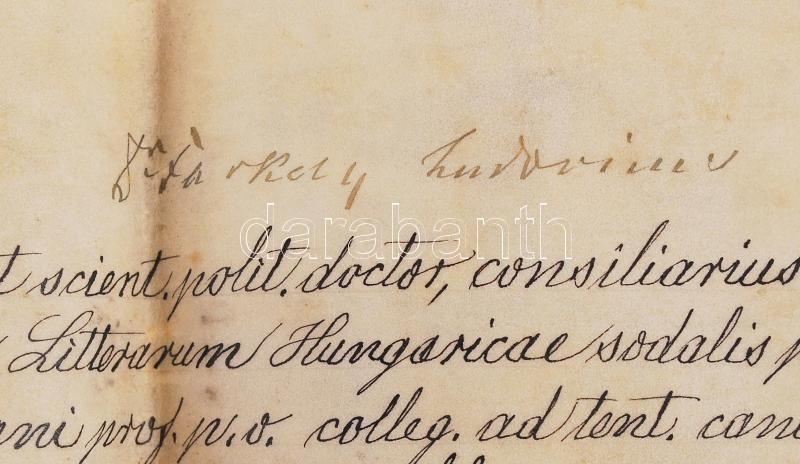 Dr Ludovicus
darabanth
t scient. polit. doctor, consiliarius
Litterarum Hungaricae sodalis p
ani prof. p. o. colleg. ad tent. cand